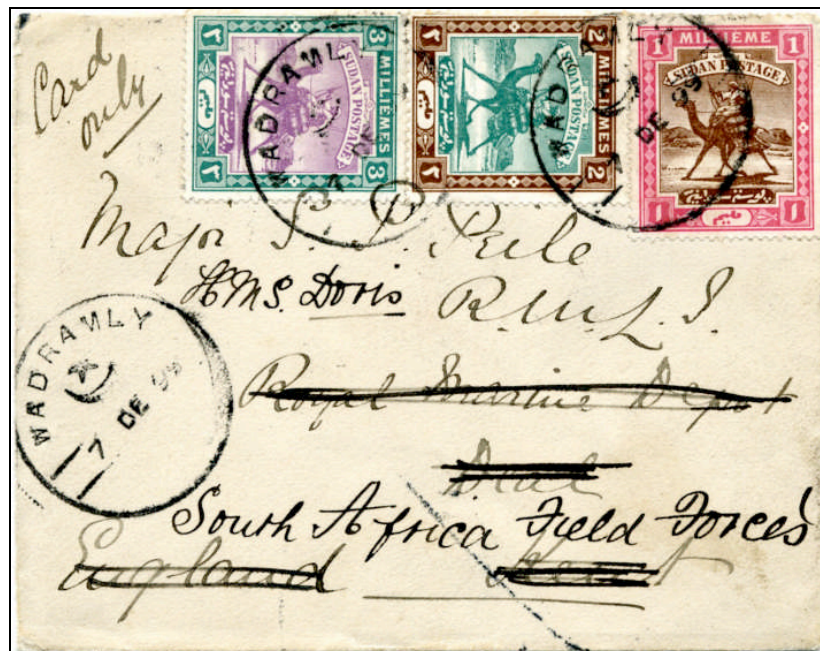 Card
only
3 MILLIEMES 3
SUDAN POSTAGE
2 MILLIEMES 2
SUDAN POSTAGE
1 MILLIEME 1
SUDAN POSTAGE
WADRAMLY
DE
WADRAMLY
7 DE 99
Major
Peile
H.M.S. Doris R.M.L.I.
Royal Marine Depot
Deal
South Africa Field Forces
England Kent
WADRAMLY
7 DE 99